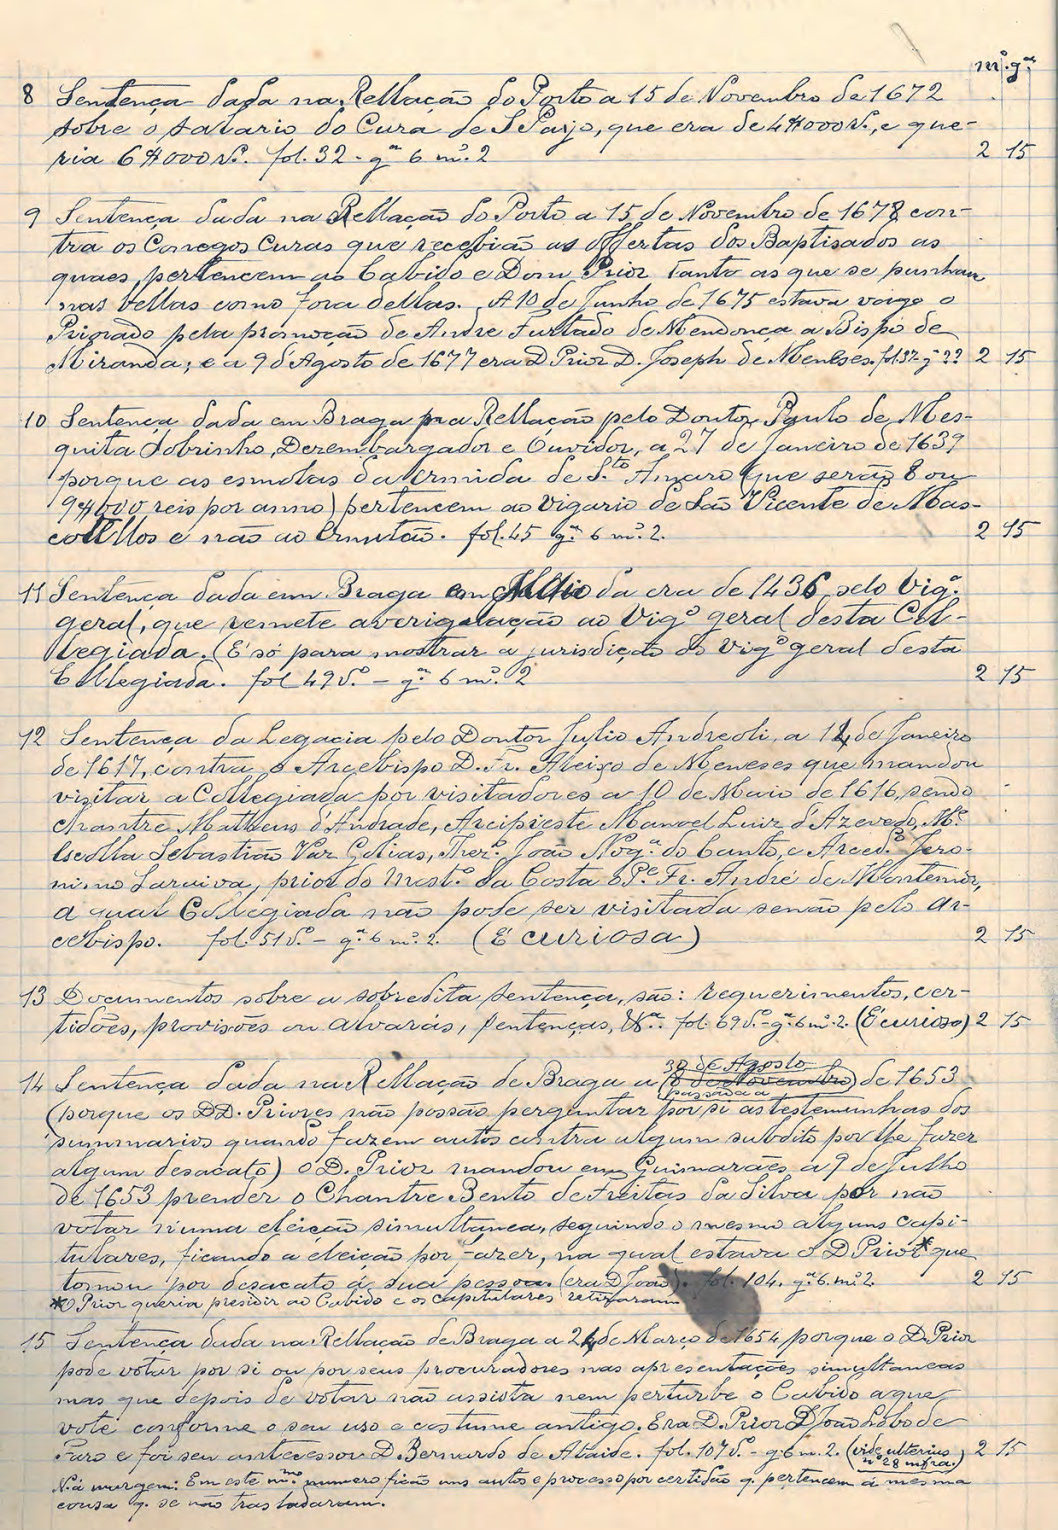 mº. gª.
8 Sentença dada na Rellação do Porto a 15 de Novembro de 1672
sobre o salario do Cura de S. Payo, que era de 4#000 rs., e que-
ria 6#000 rs. fol. 32 - gª 6 mº. 2 2 15
9 Sentença dada na Rellação do Porto a 15 de Novembro de 1678 con-
tra os Conegos Curas que recebião as offertas dos Baptisados as
quaes pertencem ao Cabido e Dom Prior tanto as que se punhan
nas vellas como fora dellas. A 10 de Junho de 1675 estava vago o
Priorado pela promoção de André Furtado de Mendonça a Bispo de
Miranda; e a 9 d'Agosto de 1677 era D. Prior D. Joseph de Meneses. fol. 37 - gª ?? 2 15
10 Sentença dada em Braga na Rellação pelo Doutor Paulo de Mes-
quita Sobrinho, Dezembargador e Ouvidor, a 27 de Janeiro de 1639
porque as esmolas da ermida de S.to Amaro (que serão 8 ou
9#000 reis por anno) pertencem ao Vigario de São Vicente de Mas-
cotellos e não ao Ermitão. fol. 45 gª 6 mº. 2. 2 15
11 Sentença dada em Braga em Maio da era de 1436, pelo Vigº.
geral, que remete a averiguação ao Vigº geral desta Col-
legiada. (É só para mostrar a jurisdição do Vigº geral desta
Collegiada. fol 49 vº. - gª. 6 mº. 2 2 15
12 Sentença da Legacia pelo Doutor Julio Andreoli, a 14 de Janeiro
de 1617, contra o Arcebispo D. Fr. Aleixo de Meneses que mandou
visitar a Collegiada por visitadores a 10 de Maio de 1616, sendo
chantre Matheus d'Andrade, Arcipreste Manoel Luiz d'Azevedo, Mº.
escolla Sebastião Vaz Golias, Thezº. João Nogª. do Canto, e Arcedº. Jero-
nimo Saraiva, prior do Mostº. da Costa o Pº. Fr. André de Montemór,
a qual Collegiada não pode ser visitada senão pelo Ar-
cebispo. fol. 51 vº. - gª. 6 mº. 2. (É curiosa) 2 15
13 Documentos sobre a sobredita sentença, são: requerimentos, cer-
tidões, provisões ou alvarás, sentenças, &ª. fol. 69 vº. - gª. 6 mº. 2. (É curioso) 2 15
30 de Agosto
14 Sentença dada na Rellação de Braga a (8 de Novembro) de 1653
passada a
(porque os DD. Priores não possão perguntar por si as testemunhas dos
summarios quando fazem autos contra algum subdito por lhe fazer
algum desacato) o D. Prior mandou em Guimarães a 9 de Julho
de 1653 prender o Chantre Bento de Freitas da Silva por não
votar n'uma eleição simultanea, seguindo o mesmo alguns capi-
tulares, ficando a eleição por fazer, na qual estava o D. Prior* que
tomou por desacato á sua pessoa. (era D. João). fol. 104. gª 6. mº. 2. 2 15
*O Prior queria presidir ao Cabido e os capitulares retiraram
15 Sentença dada na Rellação de Braga a 24 de Março de 1654 porque o D. Prior
pode votar por si ou por seus procuradores nas apresentações simultaneas
mas que depois de votar não assista nem perturbe o Cabido a que
vote conforme o seu uso e costume antigo. Era D. Prior D. João Lobo de
Faro e foi seu antecessor D. Bernardo de Ataide. fol. 107 vº. - gª 6 m. 2. (vide ulterius 2 15
nº 28 infra.)
N.a margem: Em este mmo numero ficão uns autos e processo por certidão q. pertencem á mesma
cousa q. se não trasladaram.